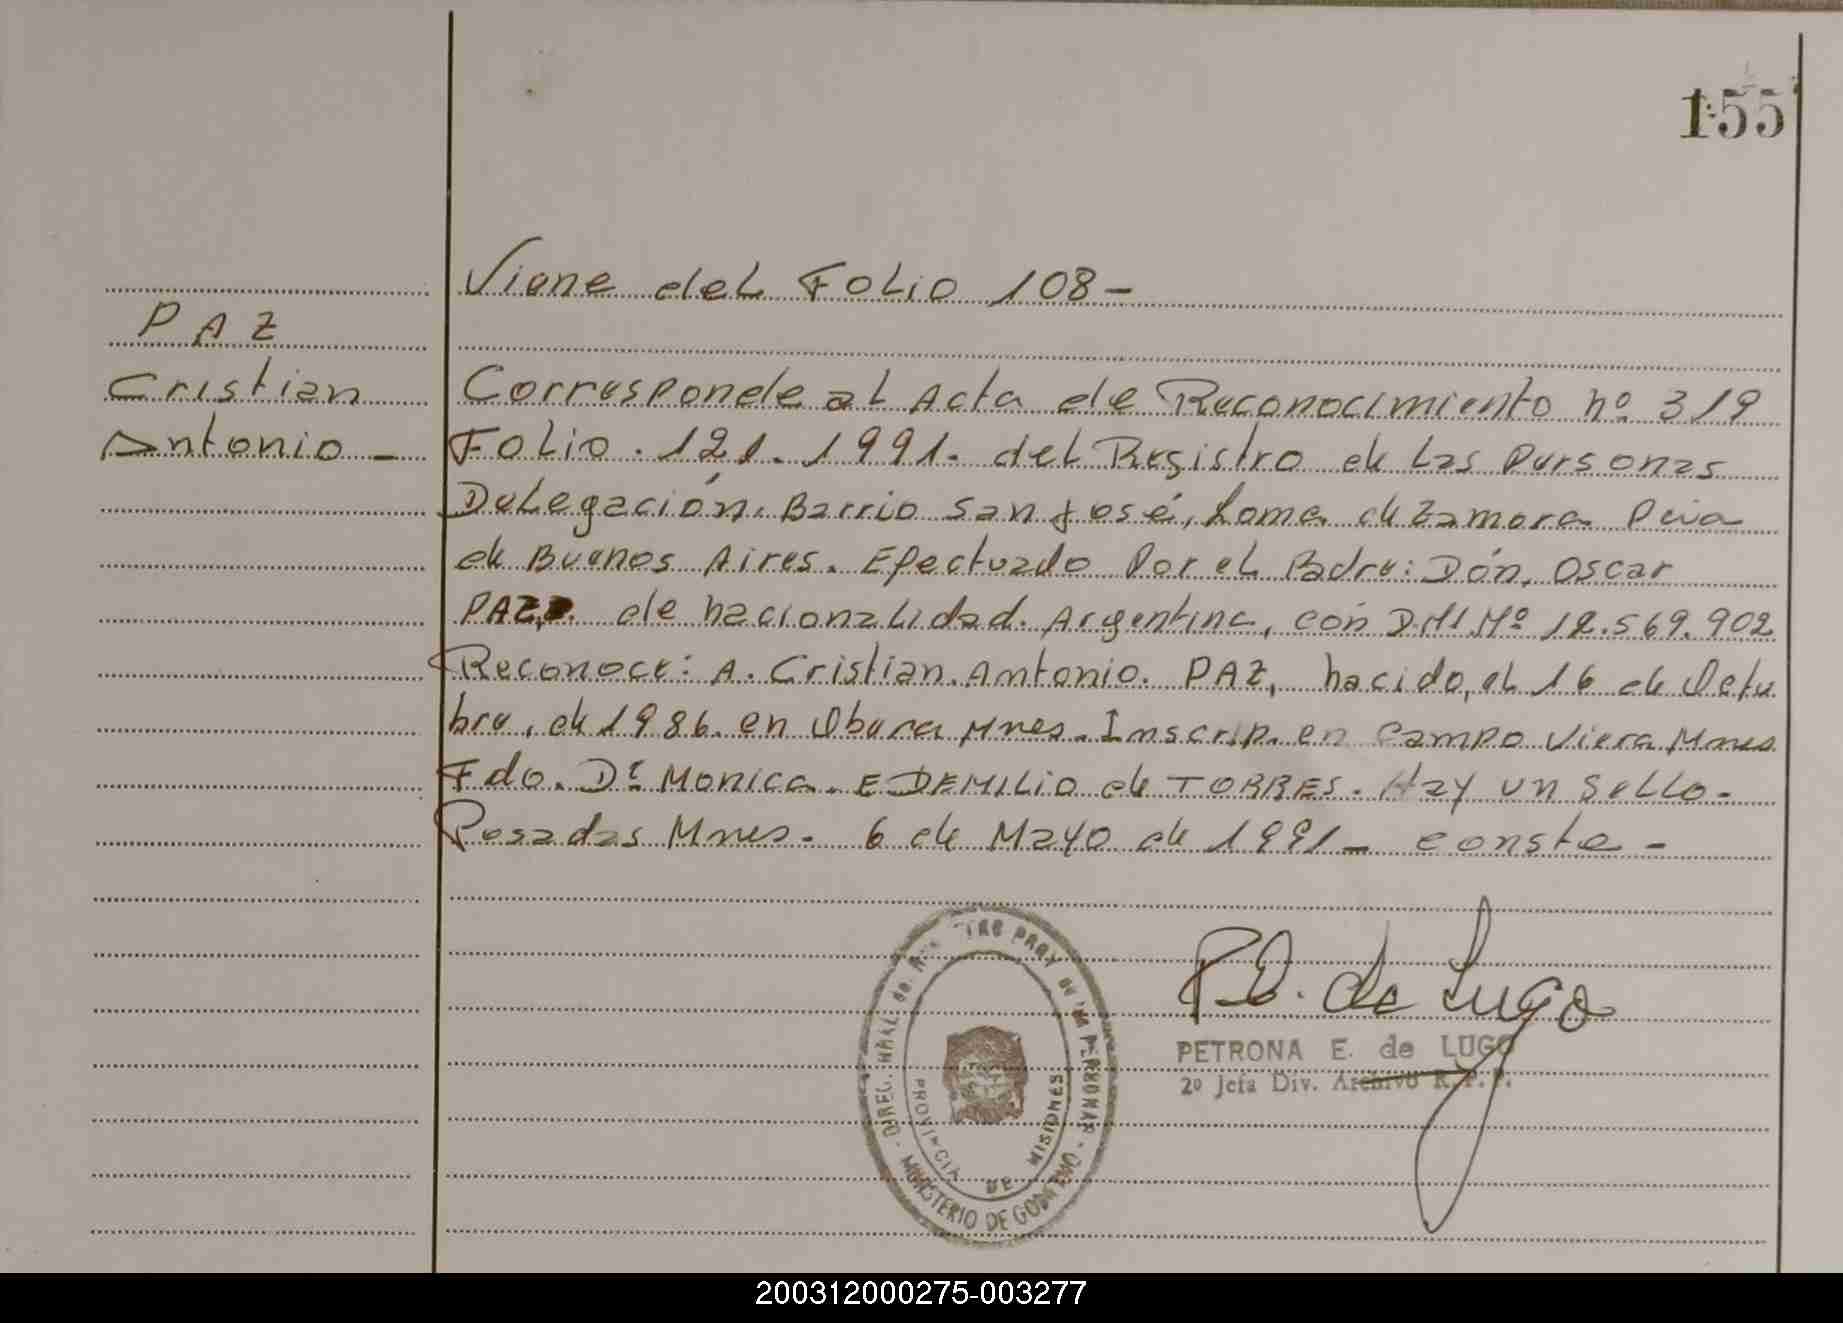 155
Viene del Folio 108-
PAZ
Cristian
Antonio -
Corresponde al Acta de Reconocimiento nº 319
Folio. 121. 1991. del Registro de las Personas
Delegación. Barrio San José, Loma de Zamora Pcia
de Buenos Aires. Efectuado Por el Padre: Dón, Oscar
PAZ. de nacionalidad. Argentina, con D.N.I. Nº 12.569.902
Reconoce: A. Cristian. Antonio. PAZ, nacido, el 16 de Octu
bre, de 1986. en Obera Mnes. Inscrip. en Campo Viera Mnes
Fdo. Dª Monica. E DEMILIO de TORRES. Hay un Sello.
Posadas Mnes. 6 de Mayo de 1991- conste -
PROVINCIA DE MISIONES
MINISTERIO DE GOBIERNO
P.E. de Lugo
PETRONA E. de LUGO
2º Jefa Div. Archivo R.P.P.
200312000275-003277